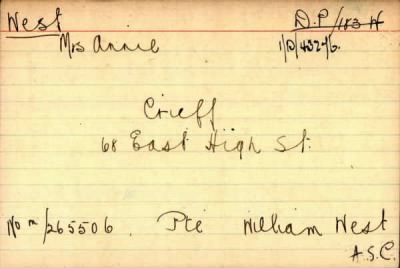 West
D.P./183 H
Mrs Annie
1/D/43276.
Crieff
68 East High St.
No m/265506. Pte William West
A.S.C.